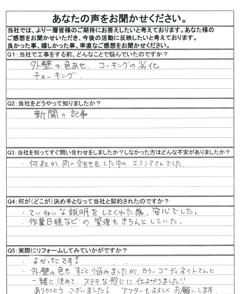 あなたの声をお聞かせください。
当社では、より一層皆様のご期待にお答えしたいと考えております。あなた様の
ご感想をお聞かせいただき、今後の活動に反映したいと考えております。
良かった事、嬉しかった事、率直なご感想をお聞かせください。
Q1:当社で工事をする前、どんなことで悩んでいたのですか?
外壁の色あせ、コーキングの劣化
チョーキング
Q2:当社をどうやって知りましたか?
新聞の記事
Q3:当社を知ってすぐ問い合わせをしましたか?しなかった方はどんな不安がありましたか?
何社か問い合わせをした中の
でした。
Q4:何が(どこが)決め手となって当社と契約されたのですか?
・ていねいな説明をしてくれた為、安心でした。
・作業日程などの管理もきちんとしていた。
Q5:実際にリフォームしてみていかがですか?
・よかったです。
・外壁の色も すごく悩みましたが、カラーコーディネイトさんと
一緒に決めて、ステキな感じに仕上がりました!!
ありがとうございました。アフターもよろしくお願いします。